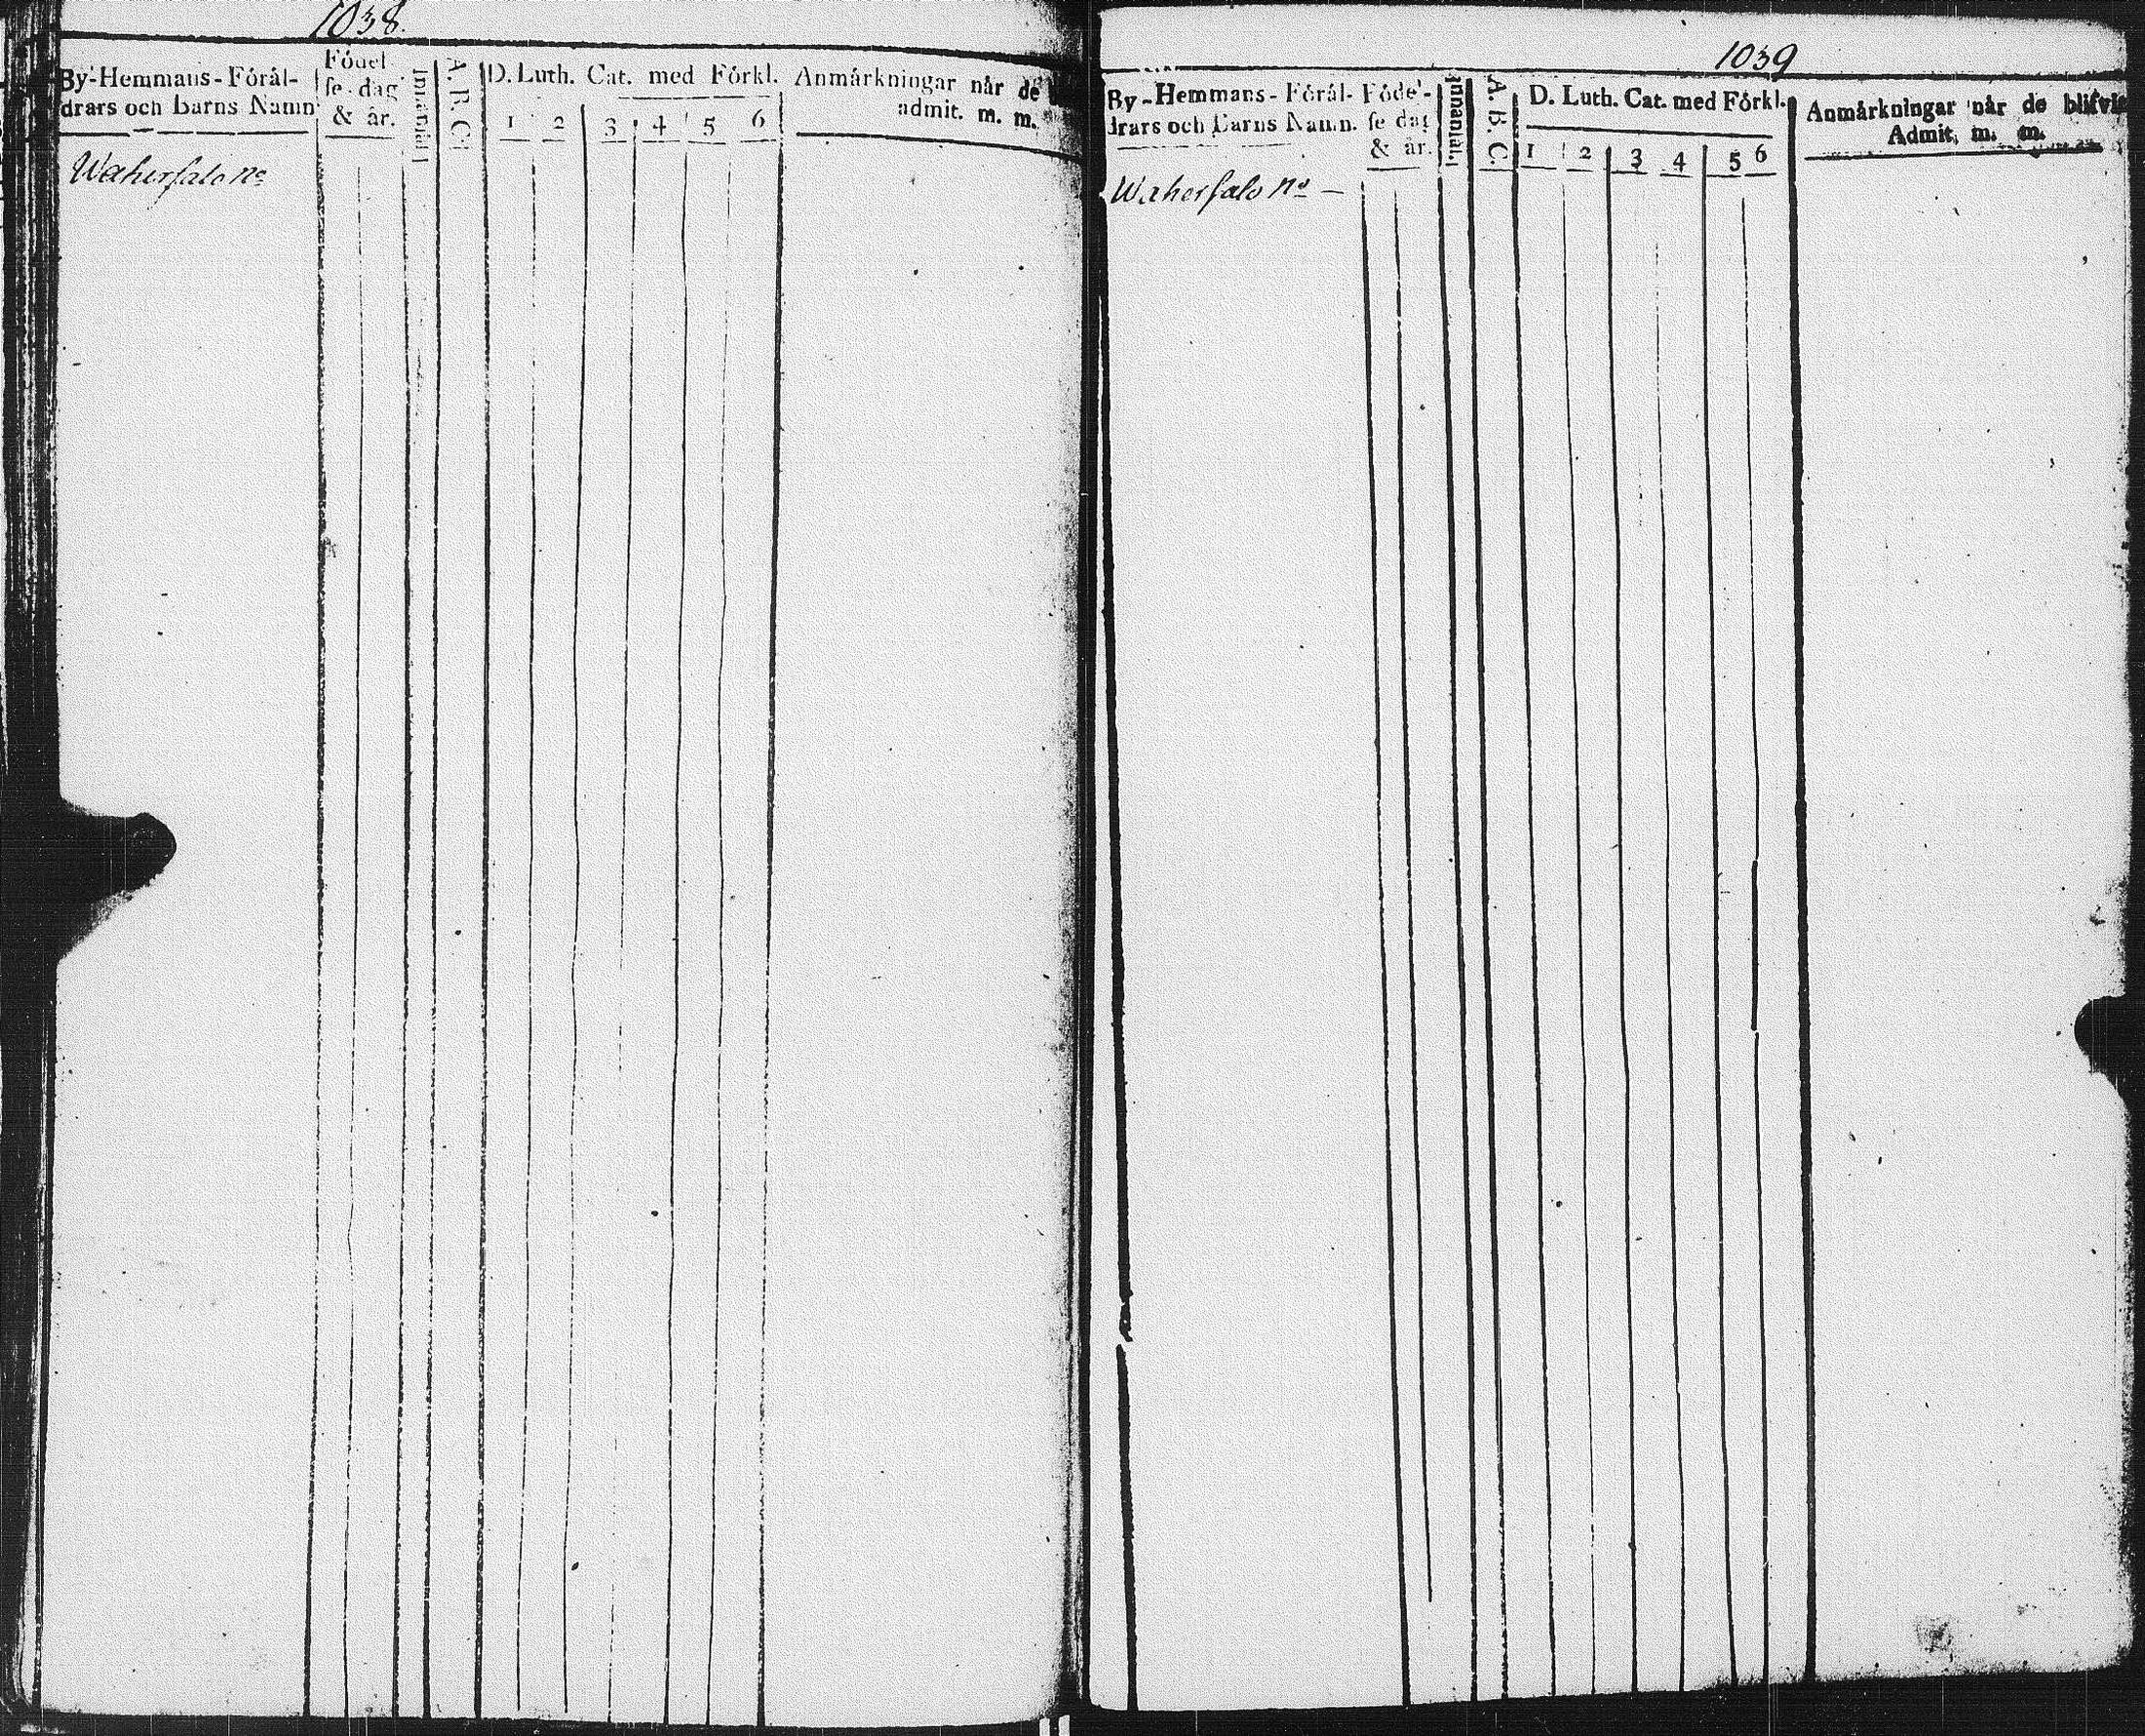 1038.
By-Hemmans-Förål-
drars och Barns Namn
Födel
se-dag
& år.
Innanläl
A. B. C.
D. Luth. Cat. med Förkl.
1 2 3 4 5 6
Anmårkningar når de
admit. m. m.
Waherfalo No
1039
By-Hemmans-Förål-
drars och Barns Namn.
Födel-
se dag
& år.
Innanläl.
A. B. C.
D. Luth. Cat. med Förkl.
1 2 3 4 5 6
Anmårkningar når de blifvit
Admit. m. m.
Waherfalo No —